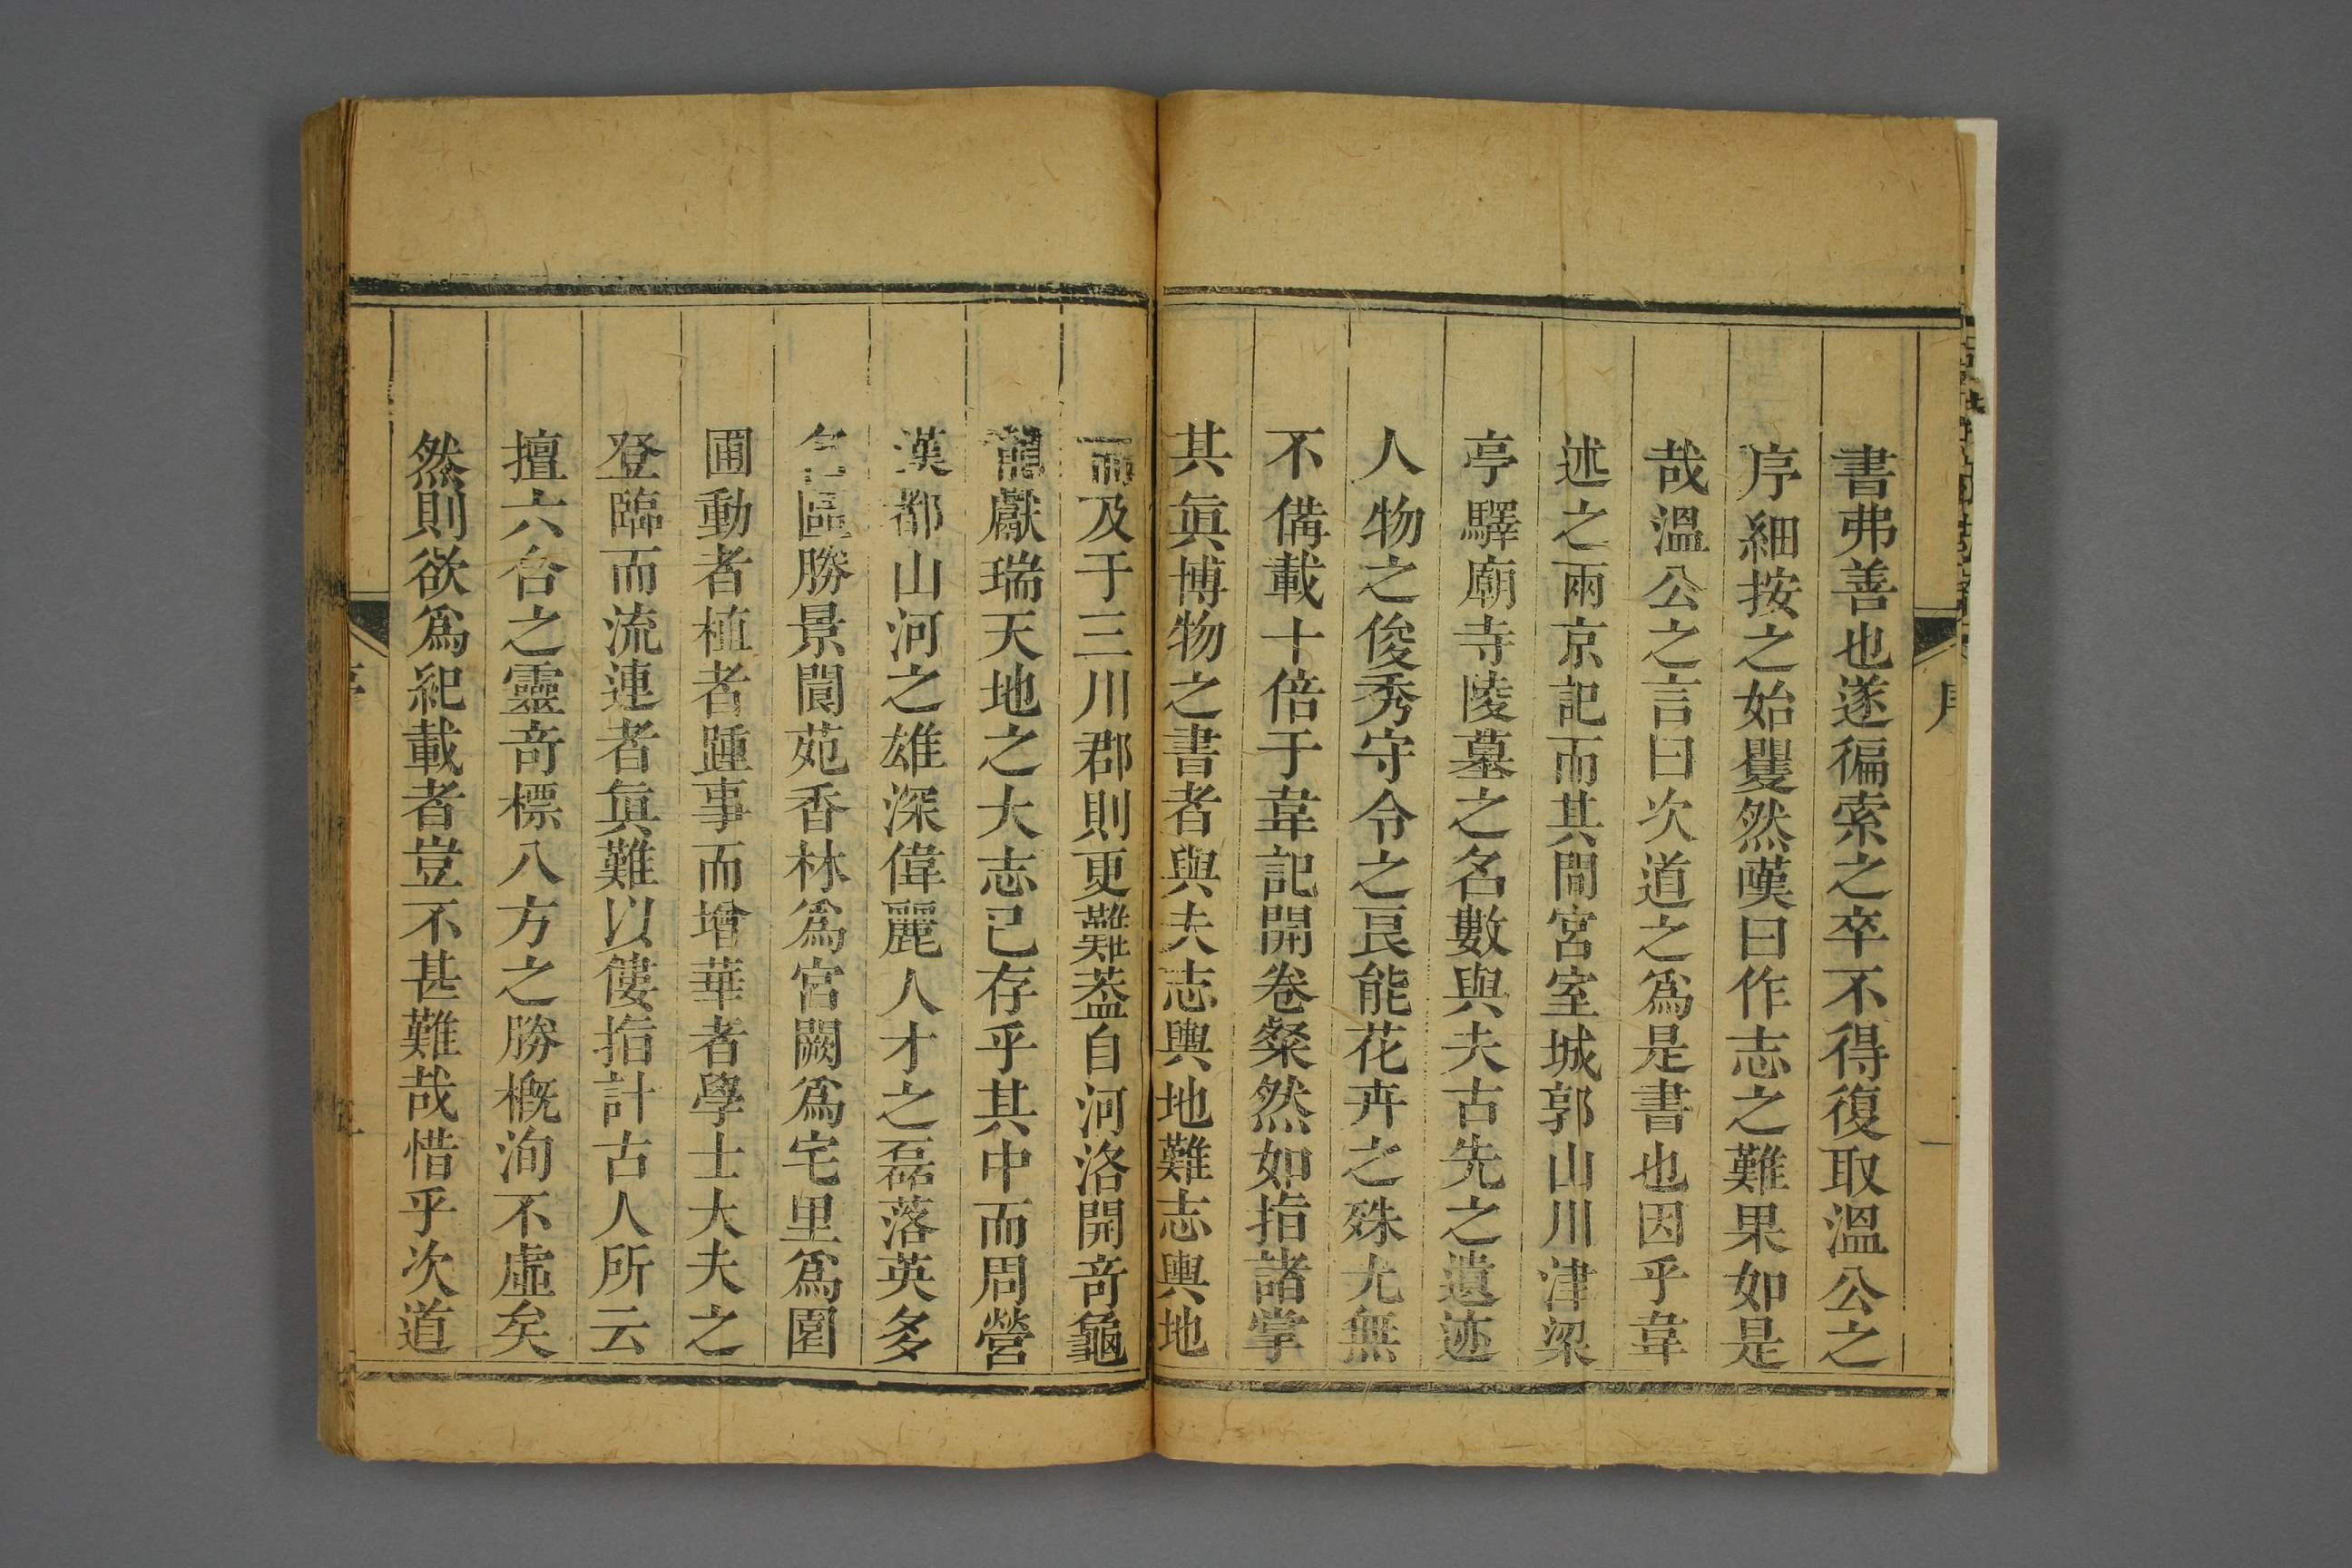 書弗善也遂徧索之卒不得復取溫公之
序細按之始矍然嘆曰作志之難果如是
哉溫公之言曰次道之爲是書也因乎韋
述之兩京記而其間宮室城郭山川津梁
亭驛廟寺陵墓之名數與夫古先之遺迹
人物之俊秀守令之良能花卉之殊尤無
不備載十倍于韋記開卷粲然如指諸掌
其眞博物之書者與夫志輿地難志輿地
而及于三川郡則更難葢自河洛開奇龜
龍獻瑞天地之大志已存乎其中而周營
漢都山河之雄深偉麗人才之磊落英多
名區勝景閬苑香林爲宮闕爲宅里爲園
圃動者植者踵事而增華者學士大夫之
登臨而流連者眞難以僂指計古人所云
擅六合之靈奇標八方之勝槪洵不虛矣
然則欲爲紀載者豈不甚難哉惜乎次道